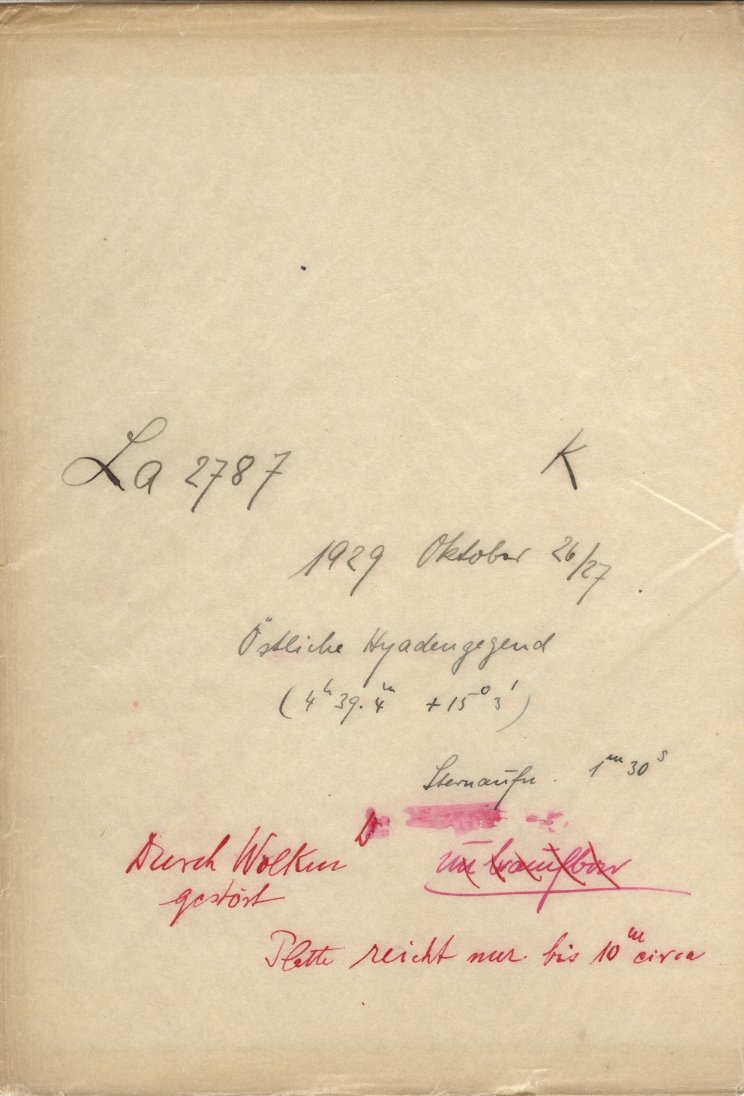 La 2787 K
1929 Oktober 26/27
Östliche Hyadengegend
(4ʰ 39.4ᵐ +15° 3')
Sternaufn. 1ᵐ 30ˢ
Durch Wolken
gestört
unbrauchbar
Platte reicht nur bis 10ᵐ circa